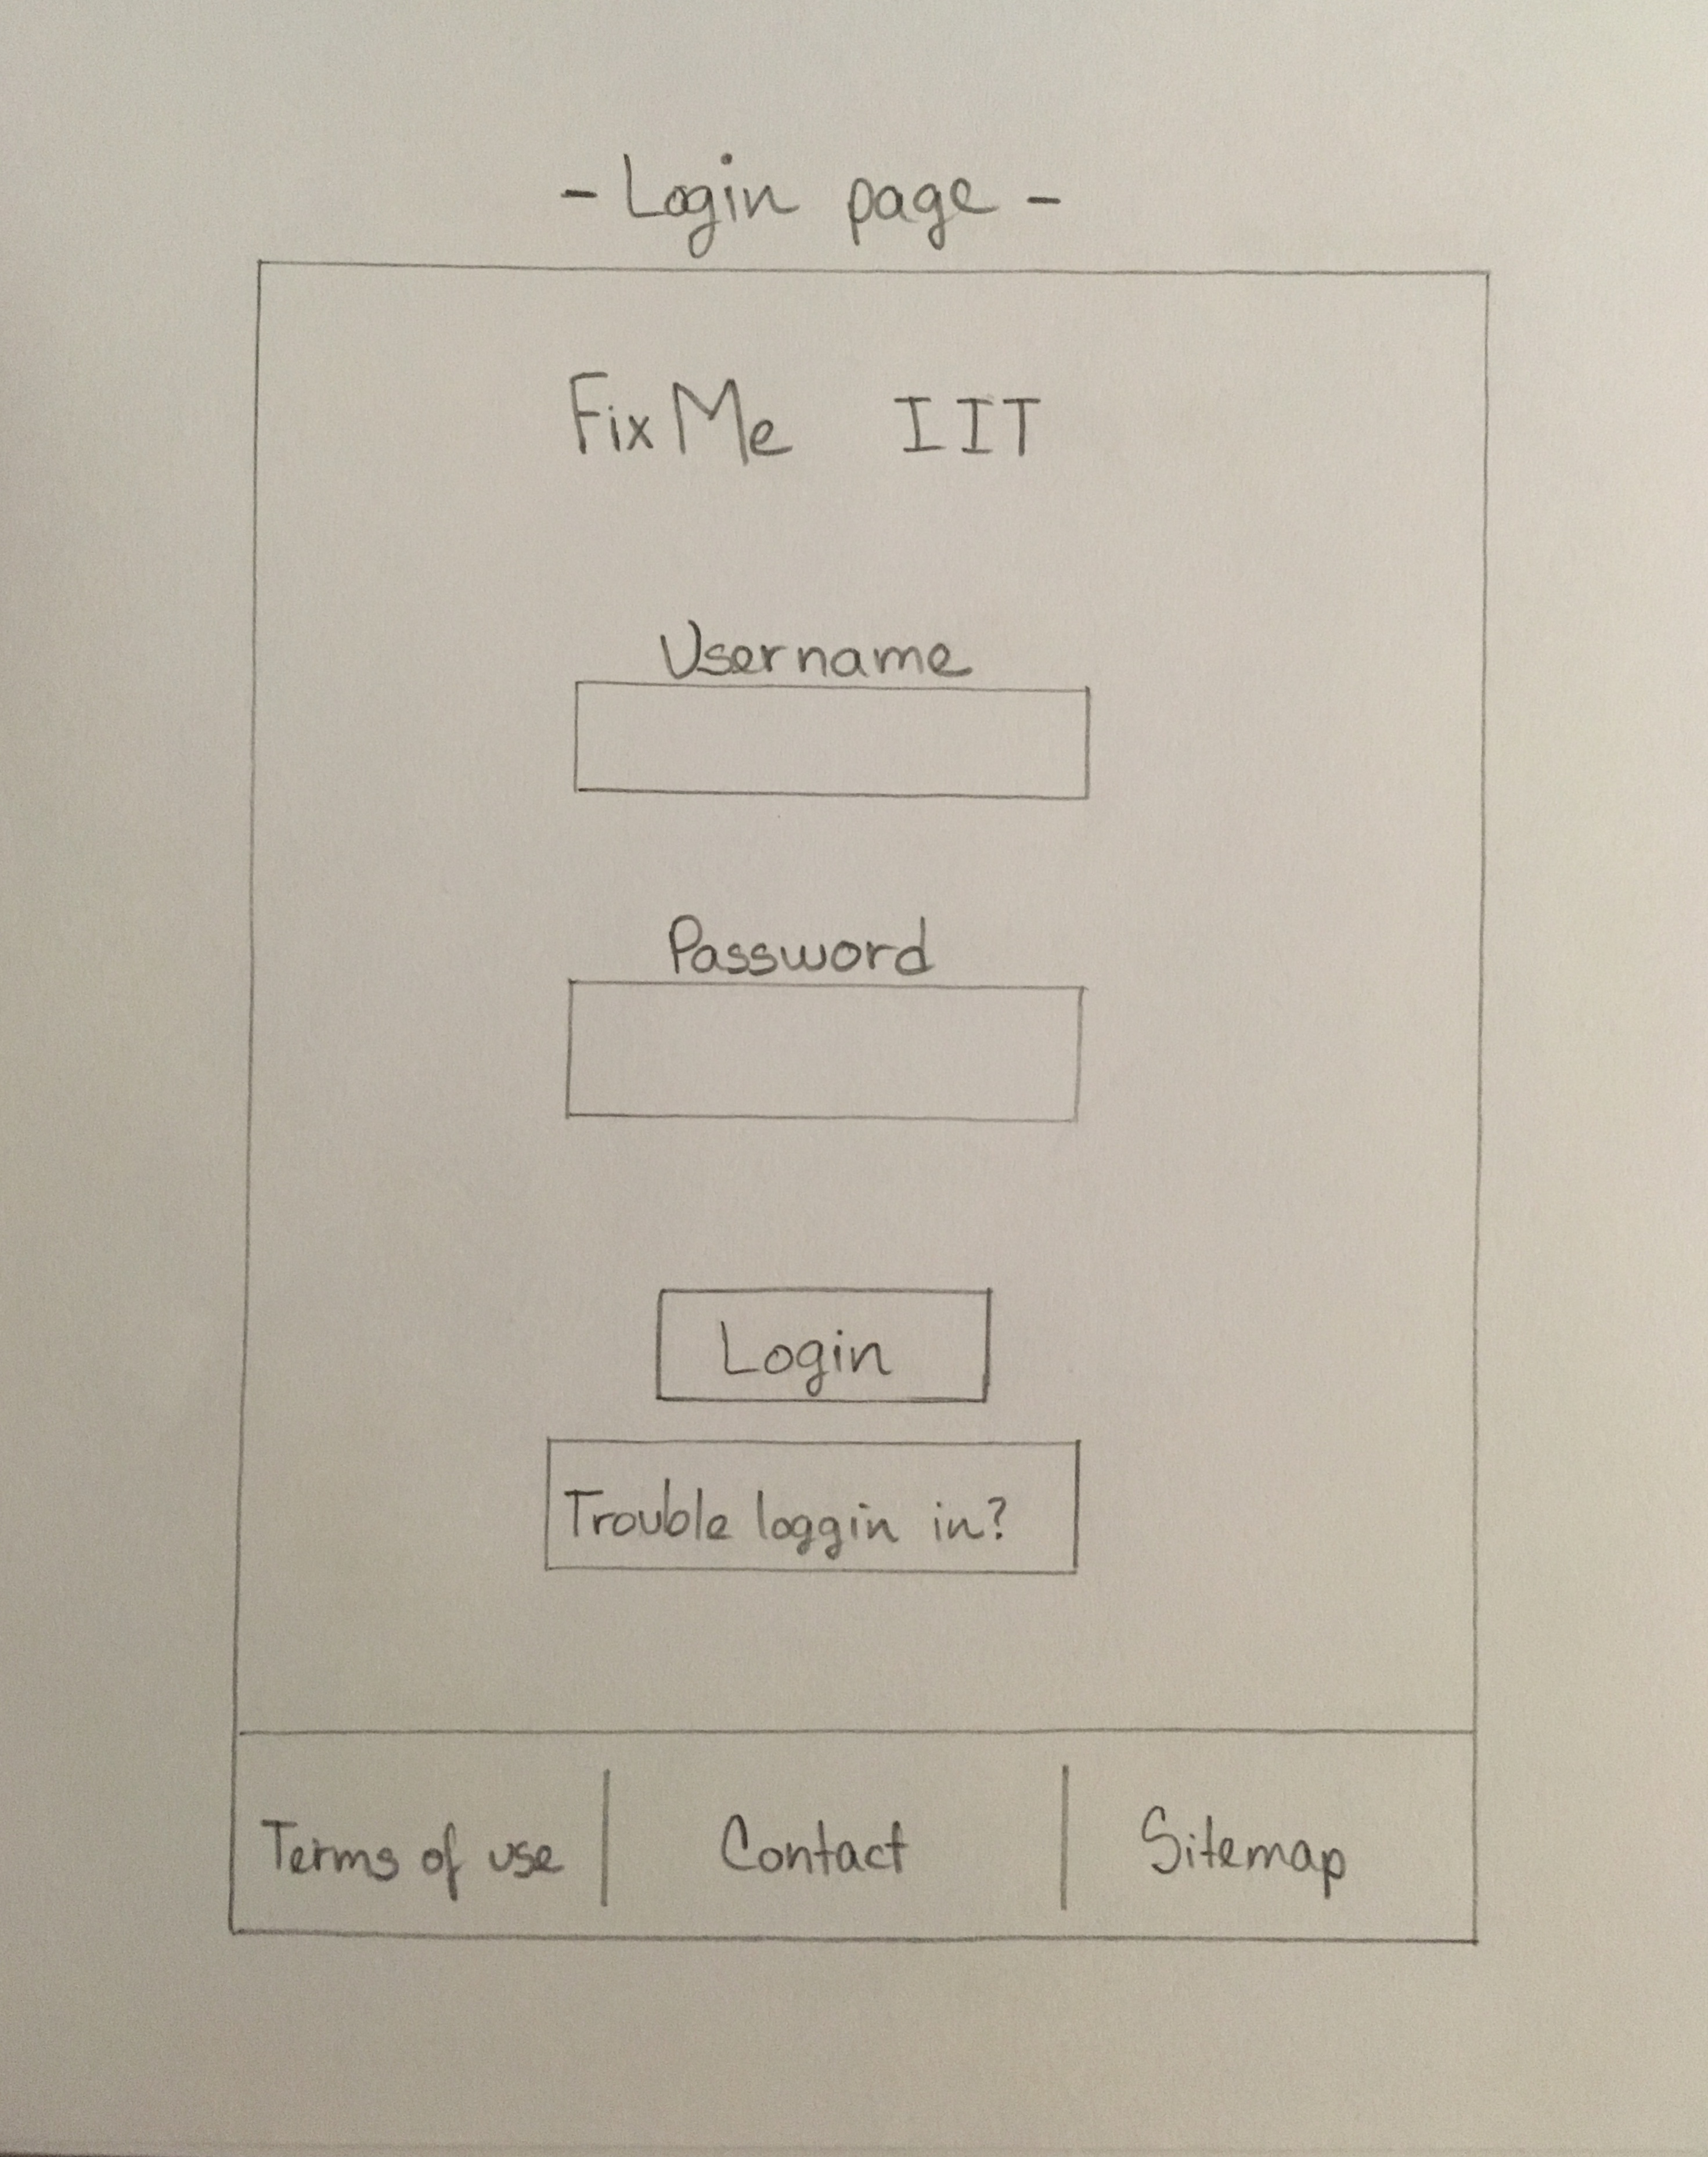 - Login page -
FixMe IIT
Username
Password
Login
Trouble loggin in?
Terms of use | Contact | Sitemap